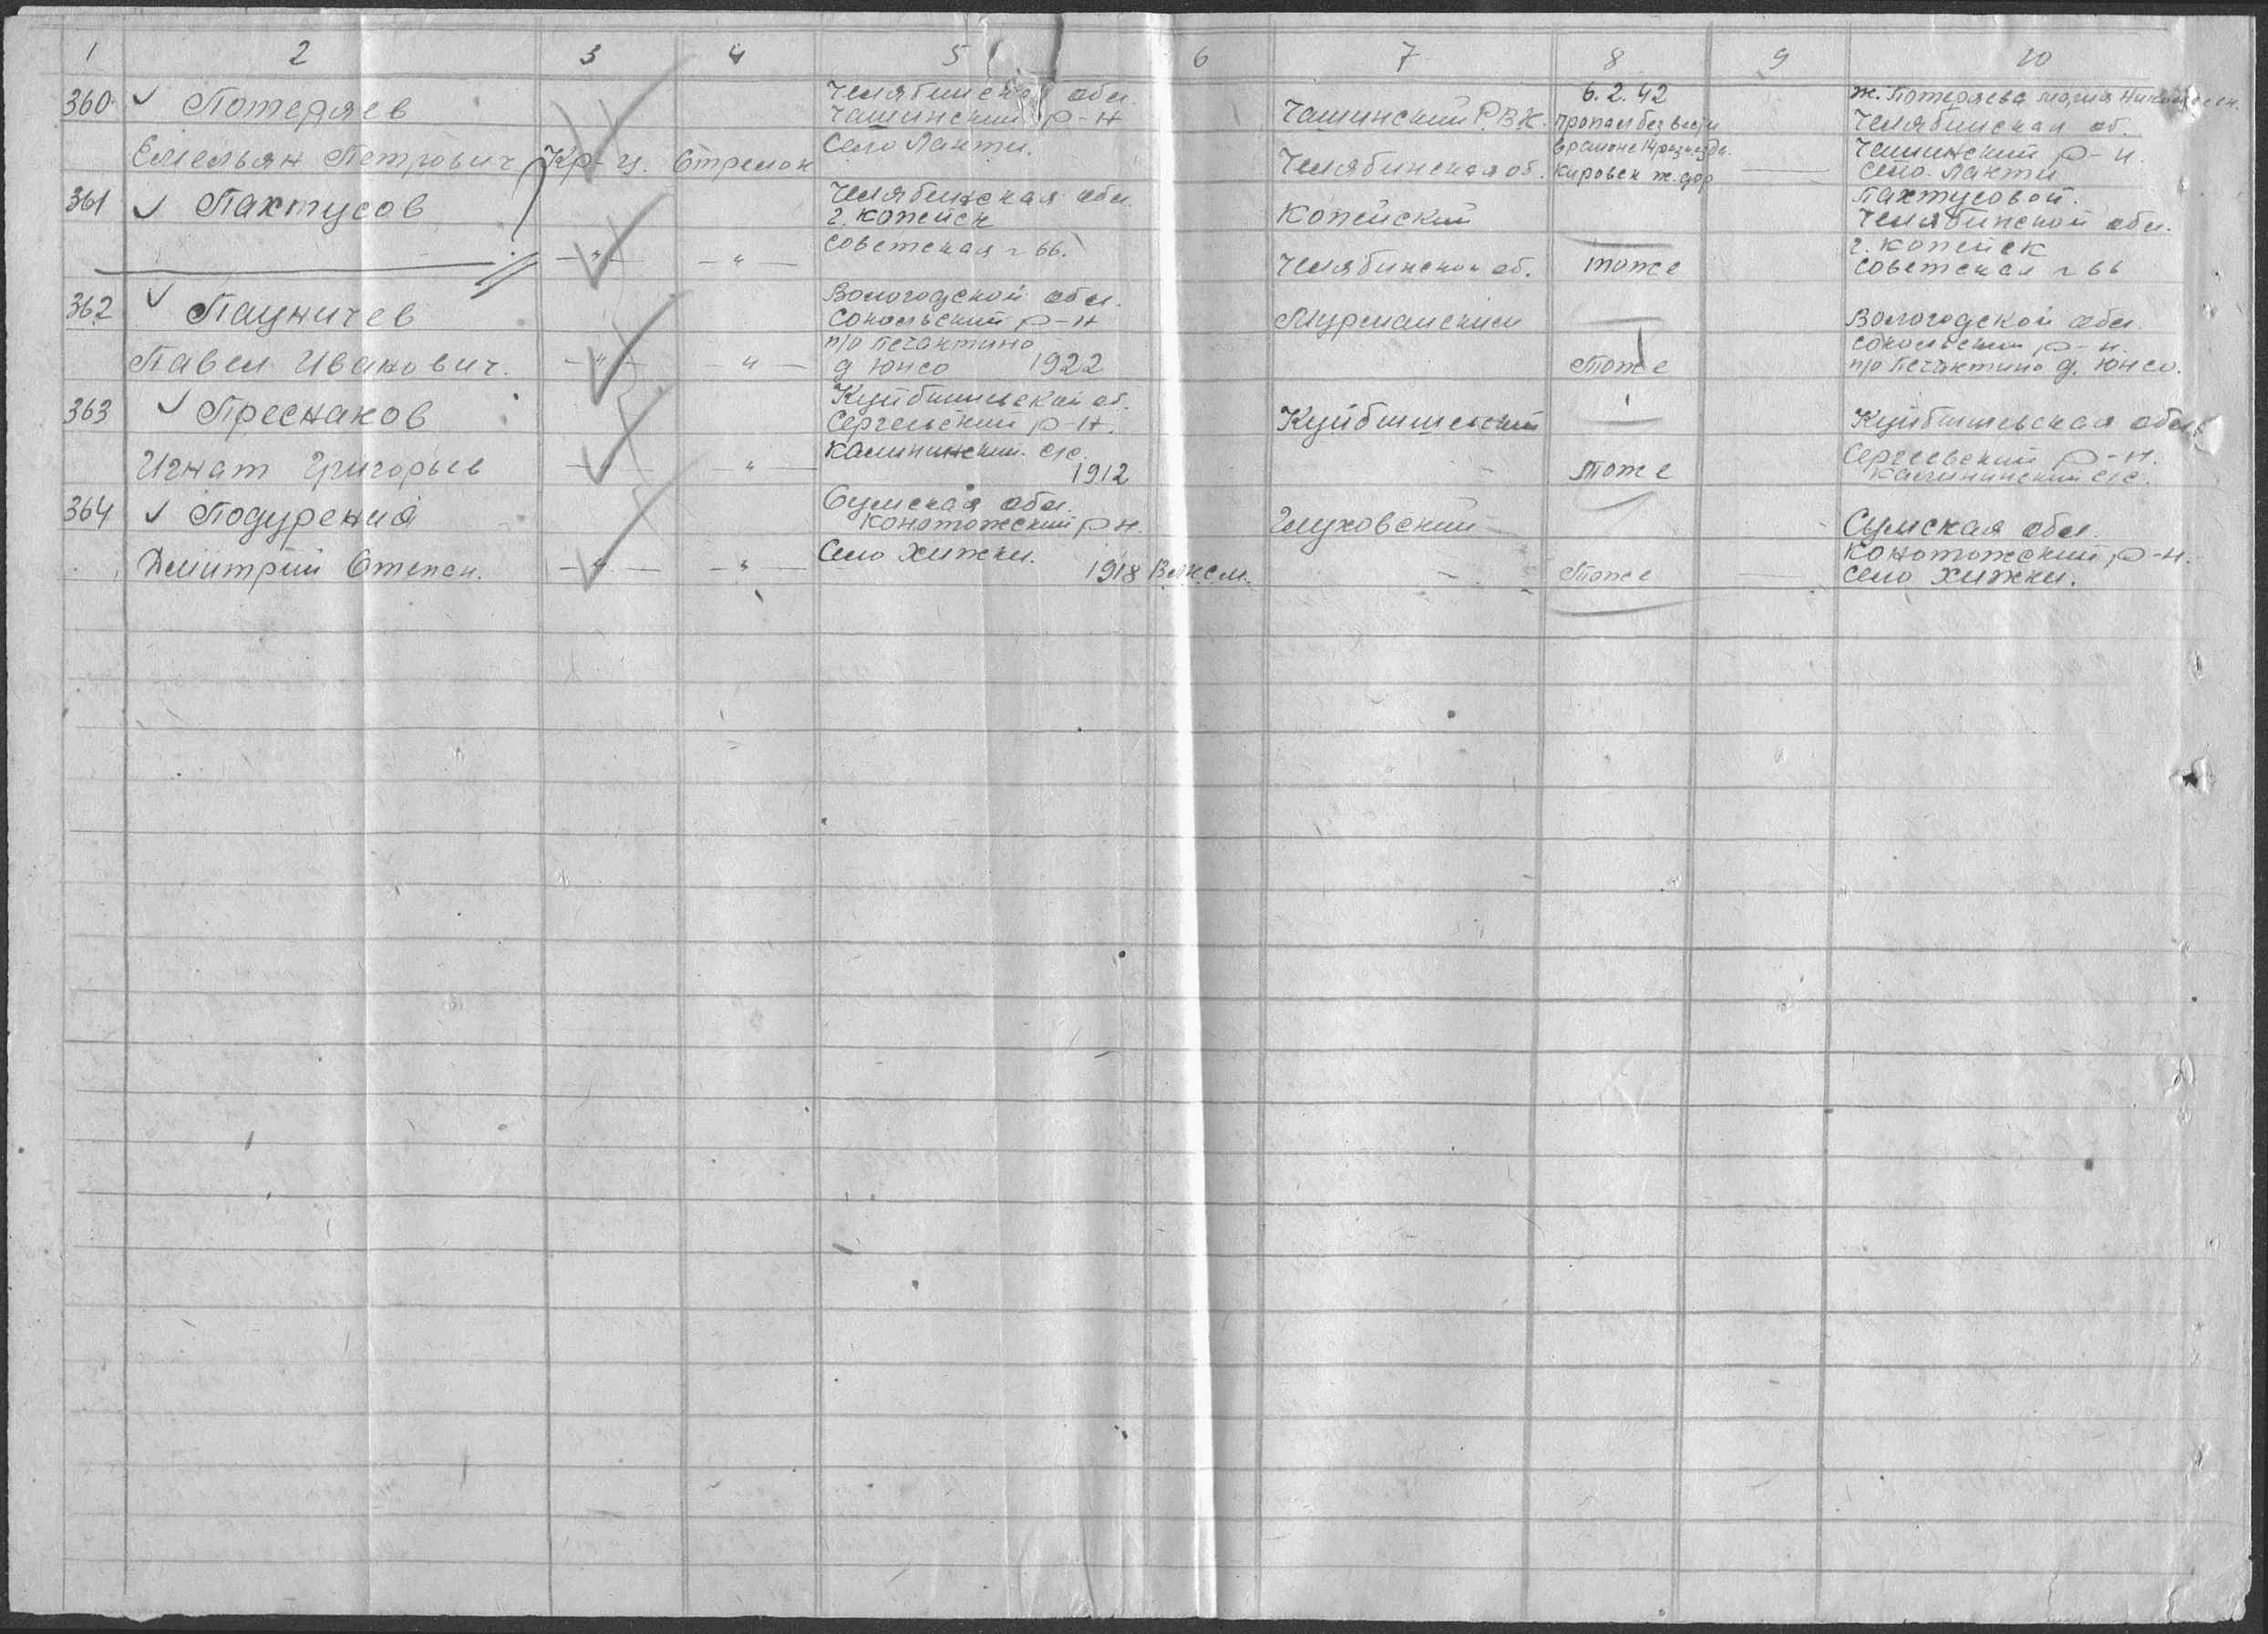 1 2 3 4 5 6 7 8 9 10
360 Потеряев
Емельян Петрович
Кр-ц. Стрелок
Челябинская обл.
Чашинский р-н
Село Лапти.
Чашинский РВК.
Челябинская об.
6.2.42
пропал без вести
в районе 14 разъезда.
Кировск ж.дор
—
ж. Потеряева Мария
Челябинская об.
Чашинский р-н.
Село Лапти
361 Пахтусов
— " — — " —
Челябинская обл.
г. Копейск
Советская 66.
Копейский
Челябинской об.
тоже
Пахтусовой.
Челябинской обл.
г. Копейск
Советская 66
362 Пауничев
Павел Иванович.
— " — — " —
Вологодской обл.
Сокольский р-н
п/о Печаткино
д Юнсо 1922
Мурманским
тоже
Вологодской обл.
Сокольский р-н.
п/о Печаткино д. Юнсо.
363 Преснаков
Игнат Григорьев
— " — — " —
Куйбышевской об.
Сергевский р-н.
Калининский с/с. 1912
Куйбышевский
тоже
Куйбышевская обл
Сергеевский р-н.
Калининский с/с.
364 Подурений
Дмитрий Степен.
— " — — " —
Сумская обл.
Конотопский р-н.
Село Хижки. 1918 Влксм.
Глуховский
тоже
Сумская обл.
Конотопский р-н.
Село Хижки.